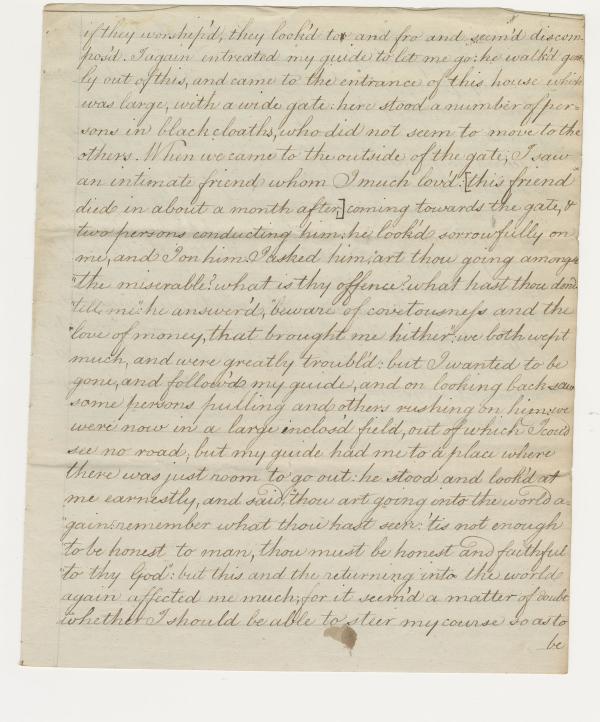 if they worship'd, they look'd to and fro and seem'd discom-
pos'd. I again entreated my guide to let me go: he walk'd gent-
ly out of this, and came to the entrance of this house which
was large, with a wide gate: here stood a number of per-
sons in black cloaths, who did not seem to move to the
others. When we came to the outside of the gate, I saw
an intimate friend whom I much lov'd: [this friend
died in about a month after] coming towards the gate, &
two persons conducting him: he look'd sorrowfully on
me, and I on him. I asked him; art thou going among
"the miserable? what is thy offence? what hast thou done?
"tell me": he answer'd, "beware of covetousness and the
"love of money, that brought me hither": we both wept
much, and were greatly troubl'd: but I wanted to be
gone, and follow'd my guide, and on looking back saw
some persons pulling and others rushing on him: we
were now in a large inclos'd field, out of which I could
see no road, but my guide had me to a place where
there was just room to go out: he stood and look'd at
me earnestly, and said, "thou art going into the world a-
"gain: remember what thou hast seen: 'tis not enough
to be honest to man, thou must be honest and faithful
"to thy God": but this and the returning into the world
again affected me much; for it seem'd a matter of doubt
whether I should be able to steer my course so as to
be